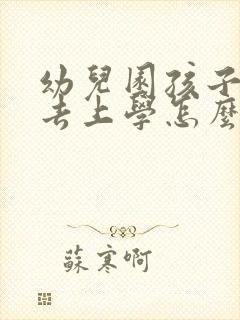 幼兒園孩子
去上學怎麼
蘇寒啊